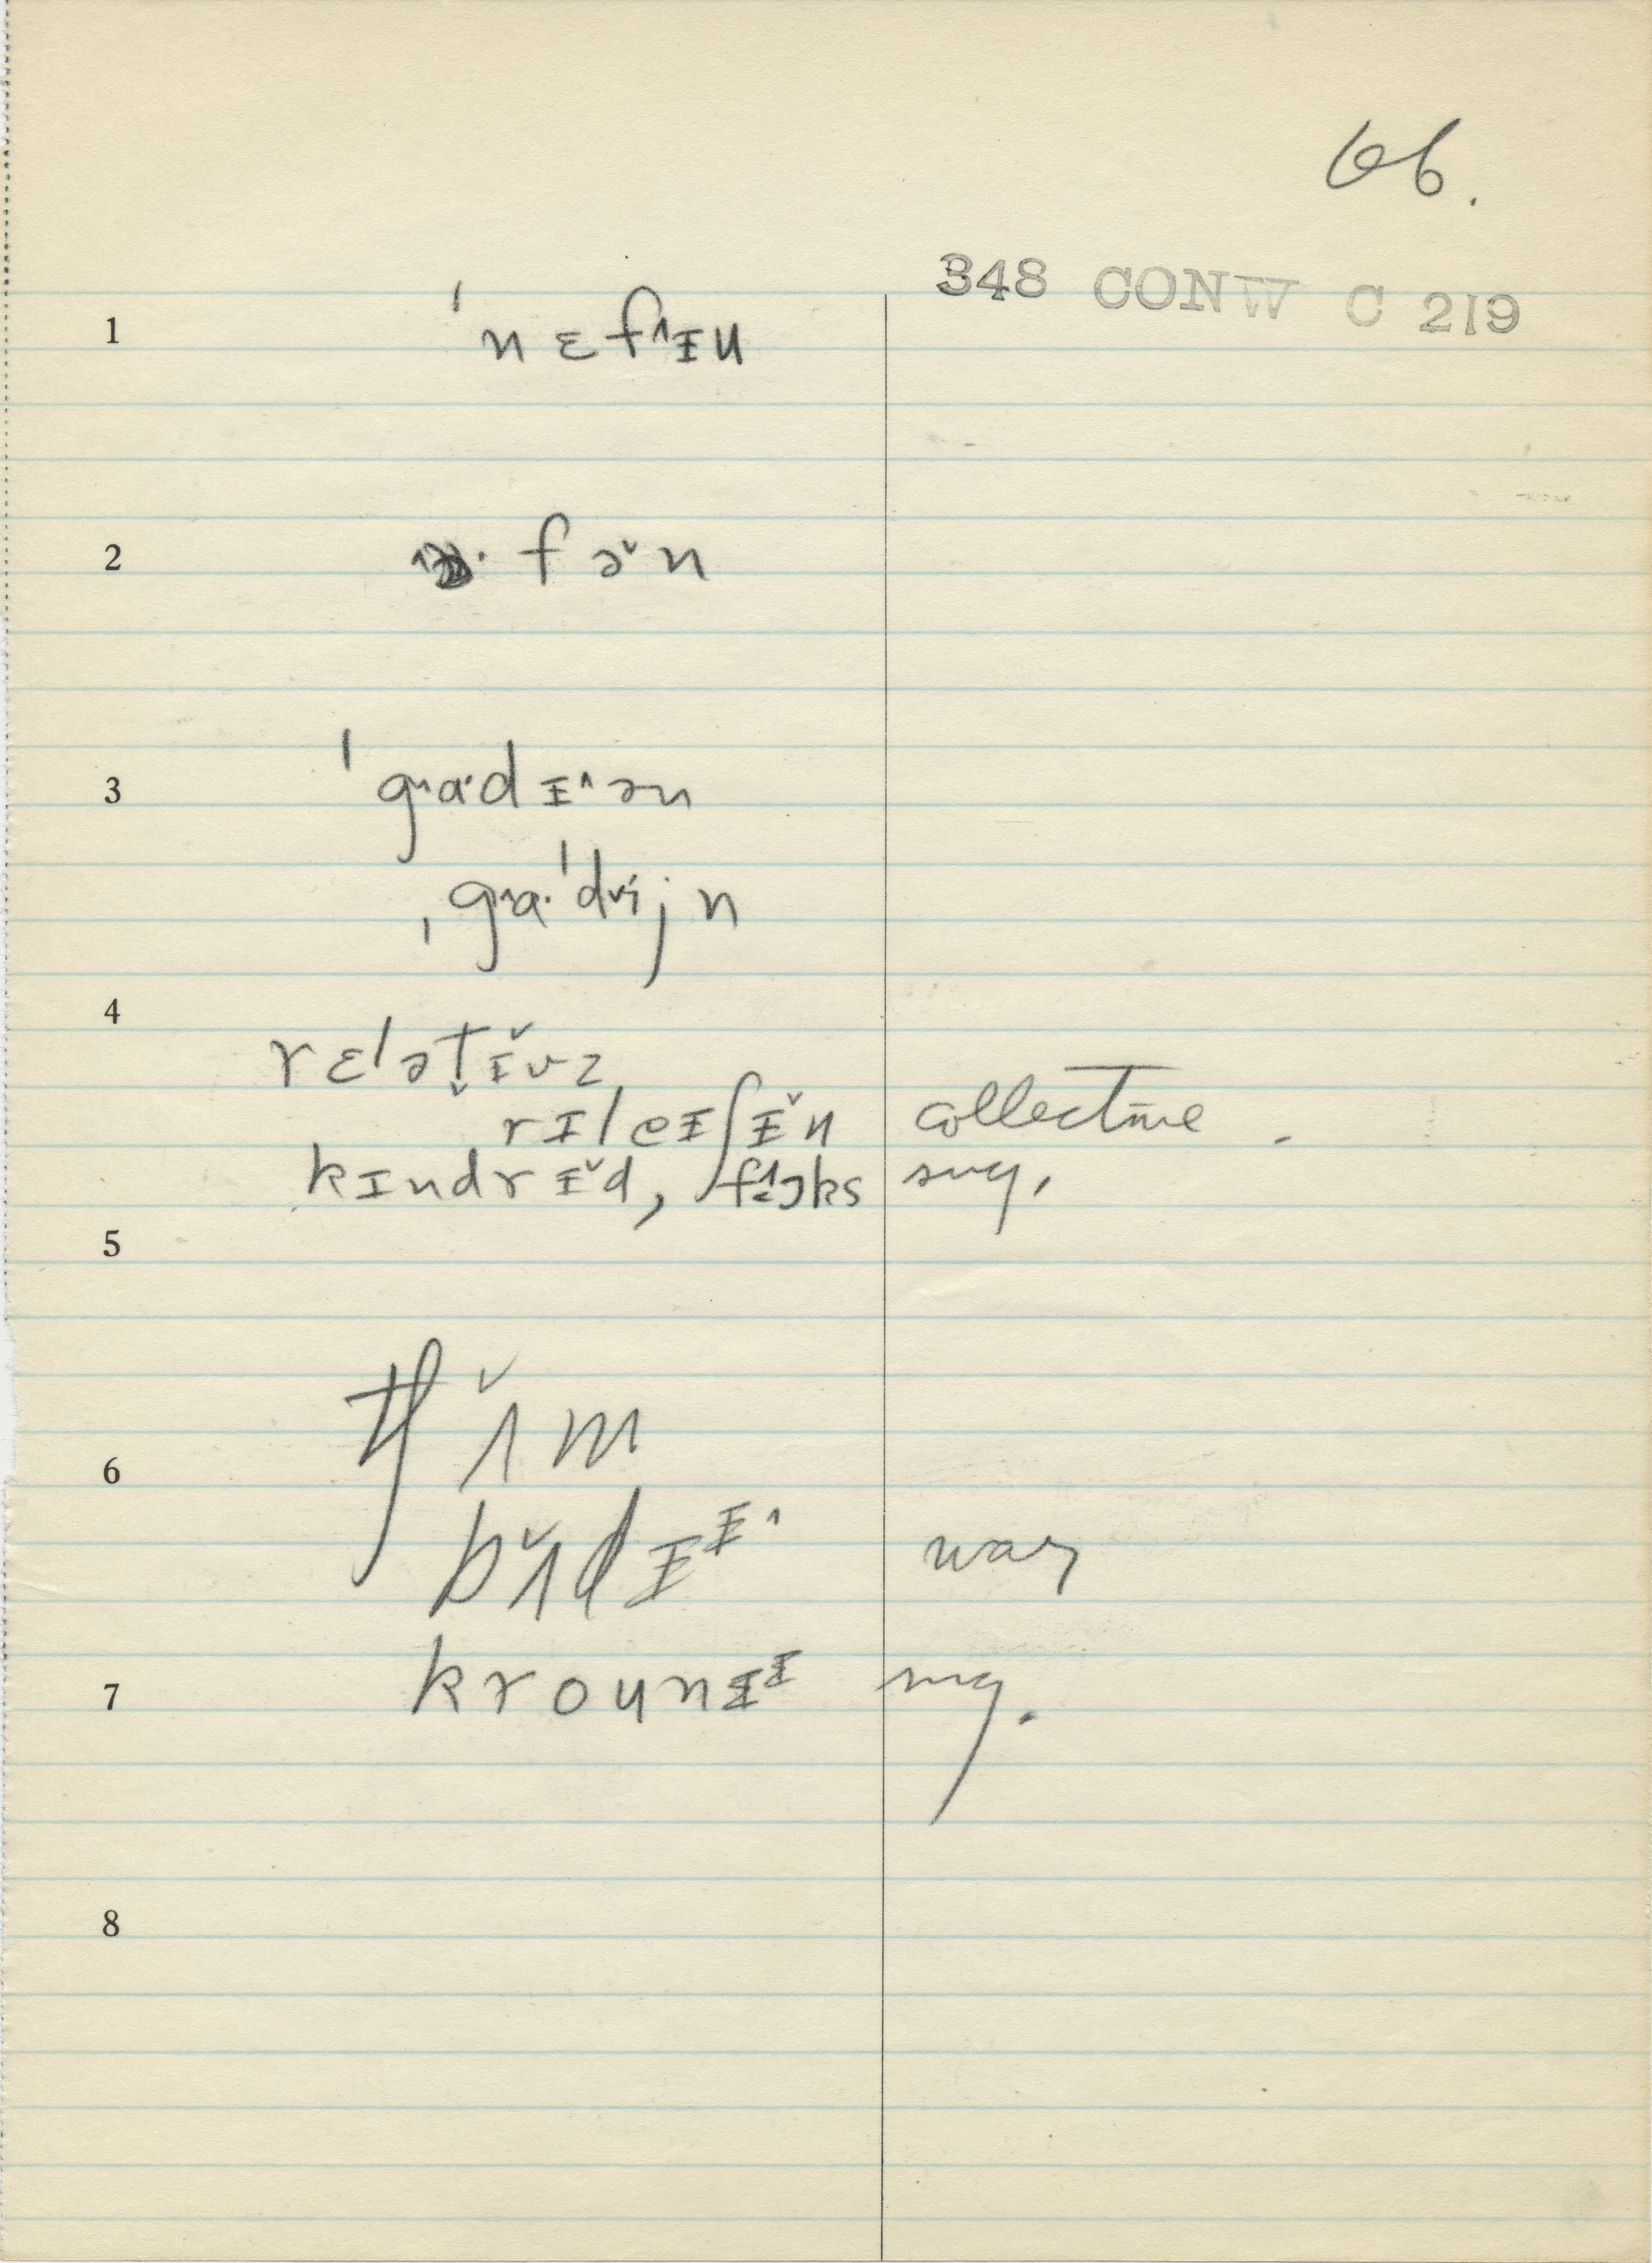 66.
348 CONW C 219
1 ˈnɛf˄ɪu
2 fə˅n
3 ˈgɑ˄·dɪ˄ən
ˌgɑ˄·ˈdi˅jn
4 rɛləṭɪ˅vz
rɪleɪʃɪ˅n collective
kɪndrɪ˅d, foks sug.
5
tʃʌ˅m
6
bʌ˅dɪɪ˄ war
7 krounɪɪ sug.
8